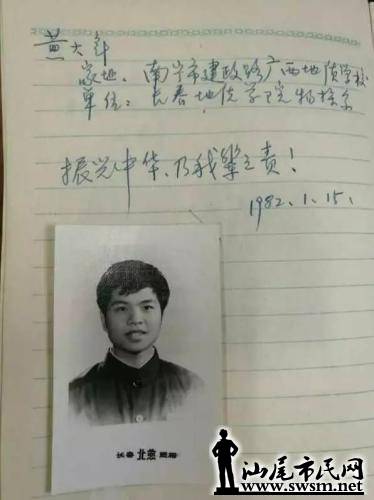 黄大年
家址：南宁市建政路广西地质学校
单位：长春地院学院物探系
振兴中华、乃我辈之责！
1982.1.15.
长春 北燕 照相
汕尾市民网
www.swsm.net